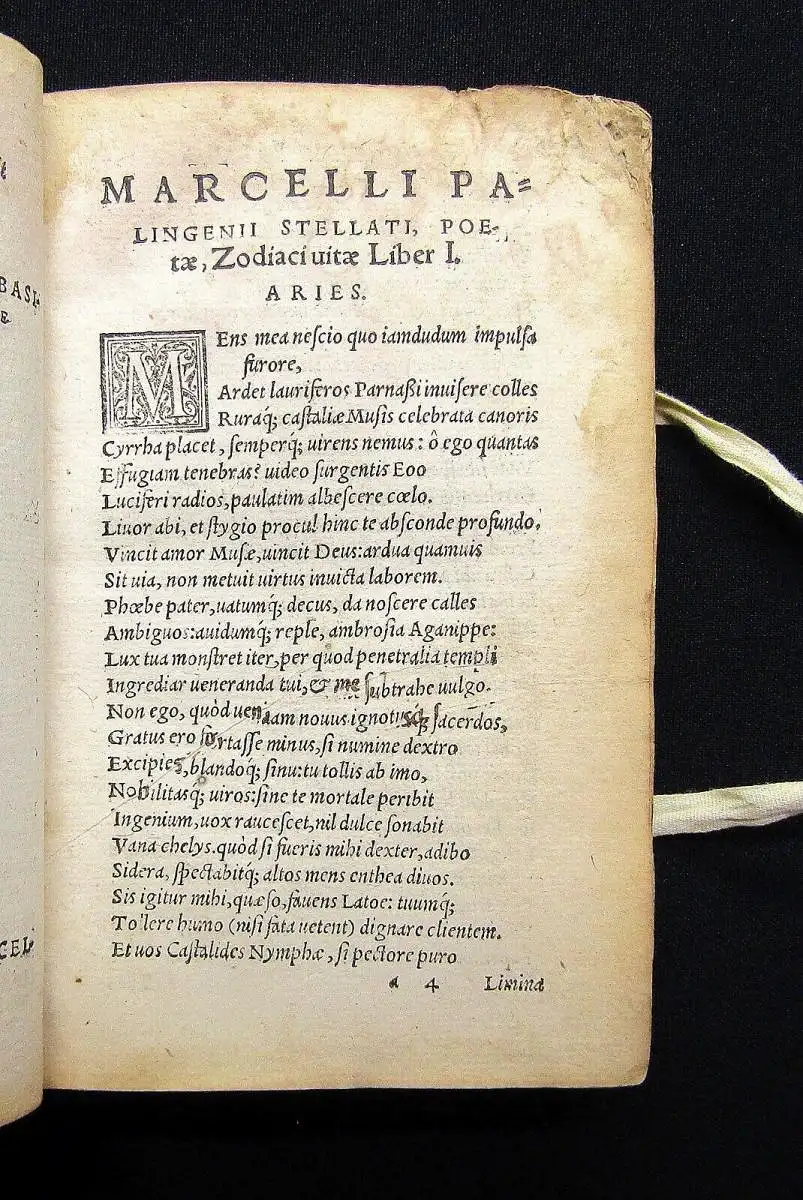 BASI-
E
CEL-
MARCELLI PA=
LINGENII STELLATI, POE-
tæ, Zodiaci uitæ Liber I.
ARIES.
MEns mea neſcio quo iamdudum impulſa
furore,
Ardet lauriferos Parnaßi inuiſere colles
Ruraq́; caſtaliæ Muſis celebrata canoris
Cyrrha placet, ſemperq́; uirens nemus: ô ego quantas
Effugiam tenebras? uideo ſurgentis Eoo
Luciferi radios, paulatim albeſcere cœlo.
Liuor abi, et ſtygio procul hinc te abſconde profundo,
Vincit amor Muſæ, uincit Deus: ardua quamuis
Sit uia, non metuit uirtus inuicta laborem.
Phœbe pater, uatumq́; decus, da noſcere calles
Ambiguos: auidumq́; reple, ambroſia Aganippe:
Lux tua monſtret iter, per quod penetralia templi
Ingrediar ueneranda tui, & me ſubtrahe uulgo.
Non ego, quòd ueniam nouus ignotusq́; ſacerdos,
Gratus ero fortaſſe minus, ſi numine dextro
Excipies, blandoq́; ſinu: tu tollis ab imo,
Nobilitasq́; uiros: ſine te mortale peribit
Ingenium, uox rauceſcet, nil dulce ſonabit
Vana chelys. quòd ſi fueris mihi dexter, adibo
Sidera, ſpectabitq́; altos mens enthea diuos.
Sis igitur mihi, quæſo, fauens Latoe: tuumq́;
Tollere humo (niſi fata uetent) dignare clientem.
Et uos Caſtalides Nymphæ, ſi pectore puro
a 4 Limina